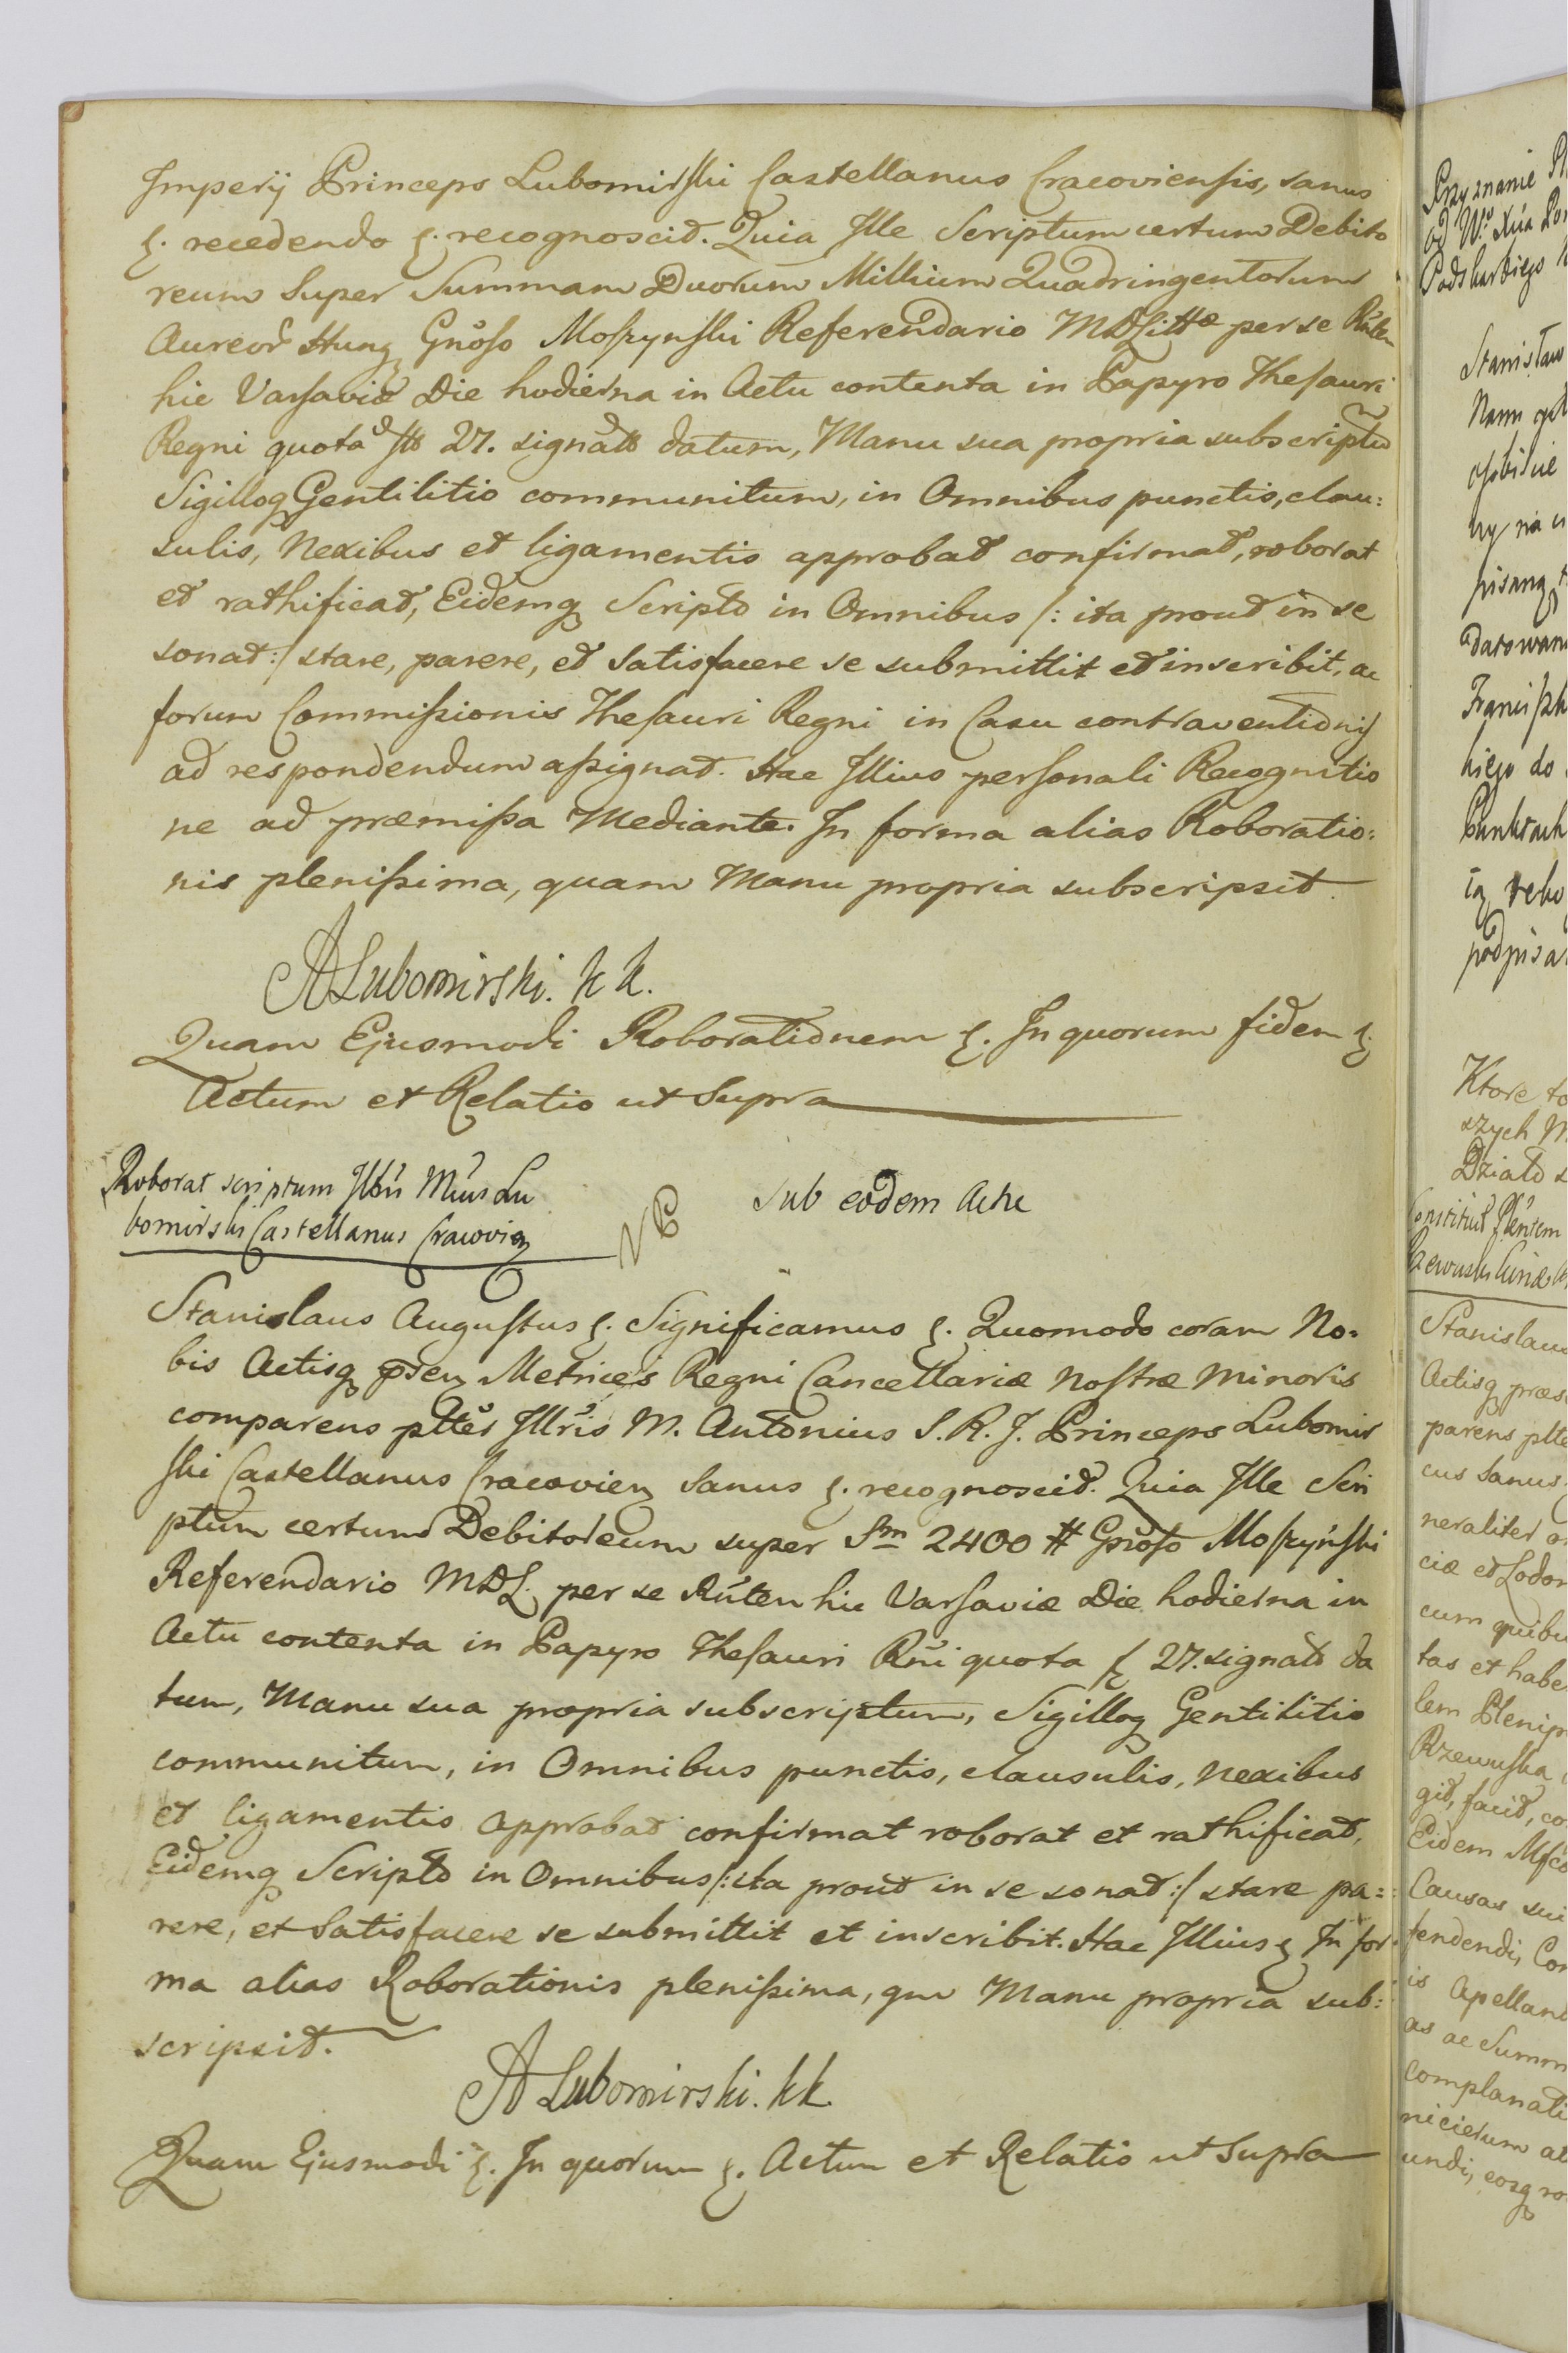 Imperij Princeps Lubomirski Castellanus Cracoviensis, sanus
&. recedendo &. recognoscit. Quia Ille Scriptum certum Debito
reum Super Summam Duorum Millium Quadringentorum
Aureor Hung Gnoso Moszynski Referendario MDLittæ per se
hic Varsaviæ Die hodierna in Actu contenta in Papyro Thesauri
Regni quota 27. signato datum, Manu sua propria subscriptũ
Sigilloq Gentilitio communitum, in Omnibus punctis, clau:
sulis, Nexibus et ligamentis approbat confirmat, roborat
et rathificat, Eidemq Scripto in Omnibus /: ita prout in se
sonat :/ stare, parere, et Satisfacere se submittit et inscribit, ac
forum Commissionis Thesauri Regni in Casu contraventionis
ad respondendum assignat. Hac Illius personali Recognitio
ne ad præmissa Mediante. In forma alias Roboratio:
nis plenissima, quam Manu propria subscripsit.
ALubomirski. k k.
Quam Ejusmodi Roborationem &. In quorum fidem &.
Actum et Relatio ut Supra
Roborat scriptum Lu
bomirski Castellanus Cracovien
Sub eodem Actu
Stanislaus Augustus &. Significamus &. Quomodo coram No:
bis Actisq Metrices Regni Cancellariæ Nostræ Minoris
comparens Illris M. Antonius S. R. I. Princeps Lubomir
ski Castellanus Cracovien Sanus &. recognoscit. Quia Ille Scri
ptum certum Debitoreum super Sm 2400 # Gnoso Moszyński
Referendario MDL. per se hic Varsaviæ Die hodierna in
Actu contenta in Papyro Thesauri Rni quota 27. signato da
tum, Manu sua propria subscriptum, Sigilloq Gentilitio
communitum, in Omnibus punctis, clausulis, Nexibus
et ligamentis approbat confirmat roborat et rathificat,
Eidemq Scripto in Omnibus /: ita prout in se sonat :/ stare pa:
rere, et Satisfacere se submittit et inscribit. Hac Illius & In for
ma alias Roborationis plenissima, qm Manu propria sub:
scripsit.
A Lubomirski. kk
Quam Ejusmodi &. In quorum &. Actum et Relatio ut Supra
Przyznanie
Podskarbiego
Stanisław
hiego do
Ktore
szych
Działo
Stanislaus
Actisq
parens
cus Sanus
neraliter
ciæ et Lodom
cum quibu
tas et habe
lem Plenip
Rzewuska
git, facit, co
Eidem
Causas sui
tendendi, Con
is Apelland
as ac Summ
complanati
undi, eosq ro